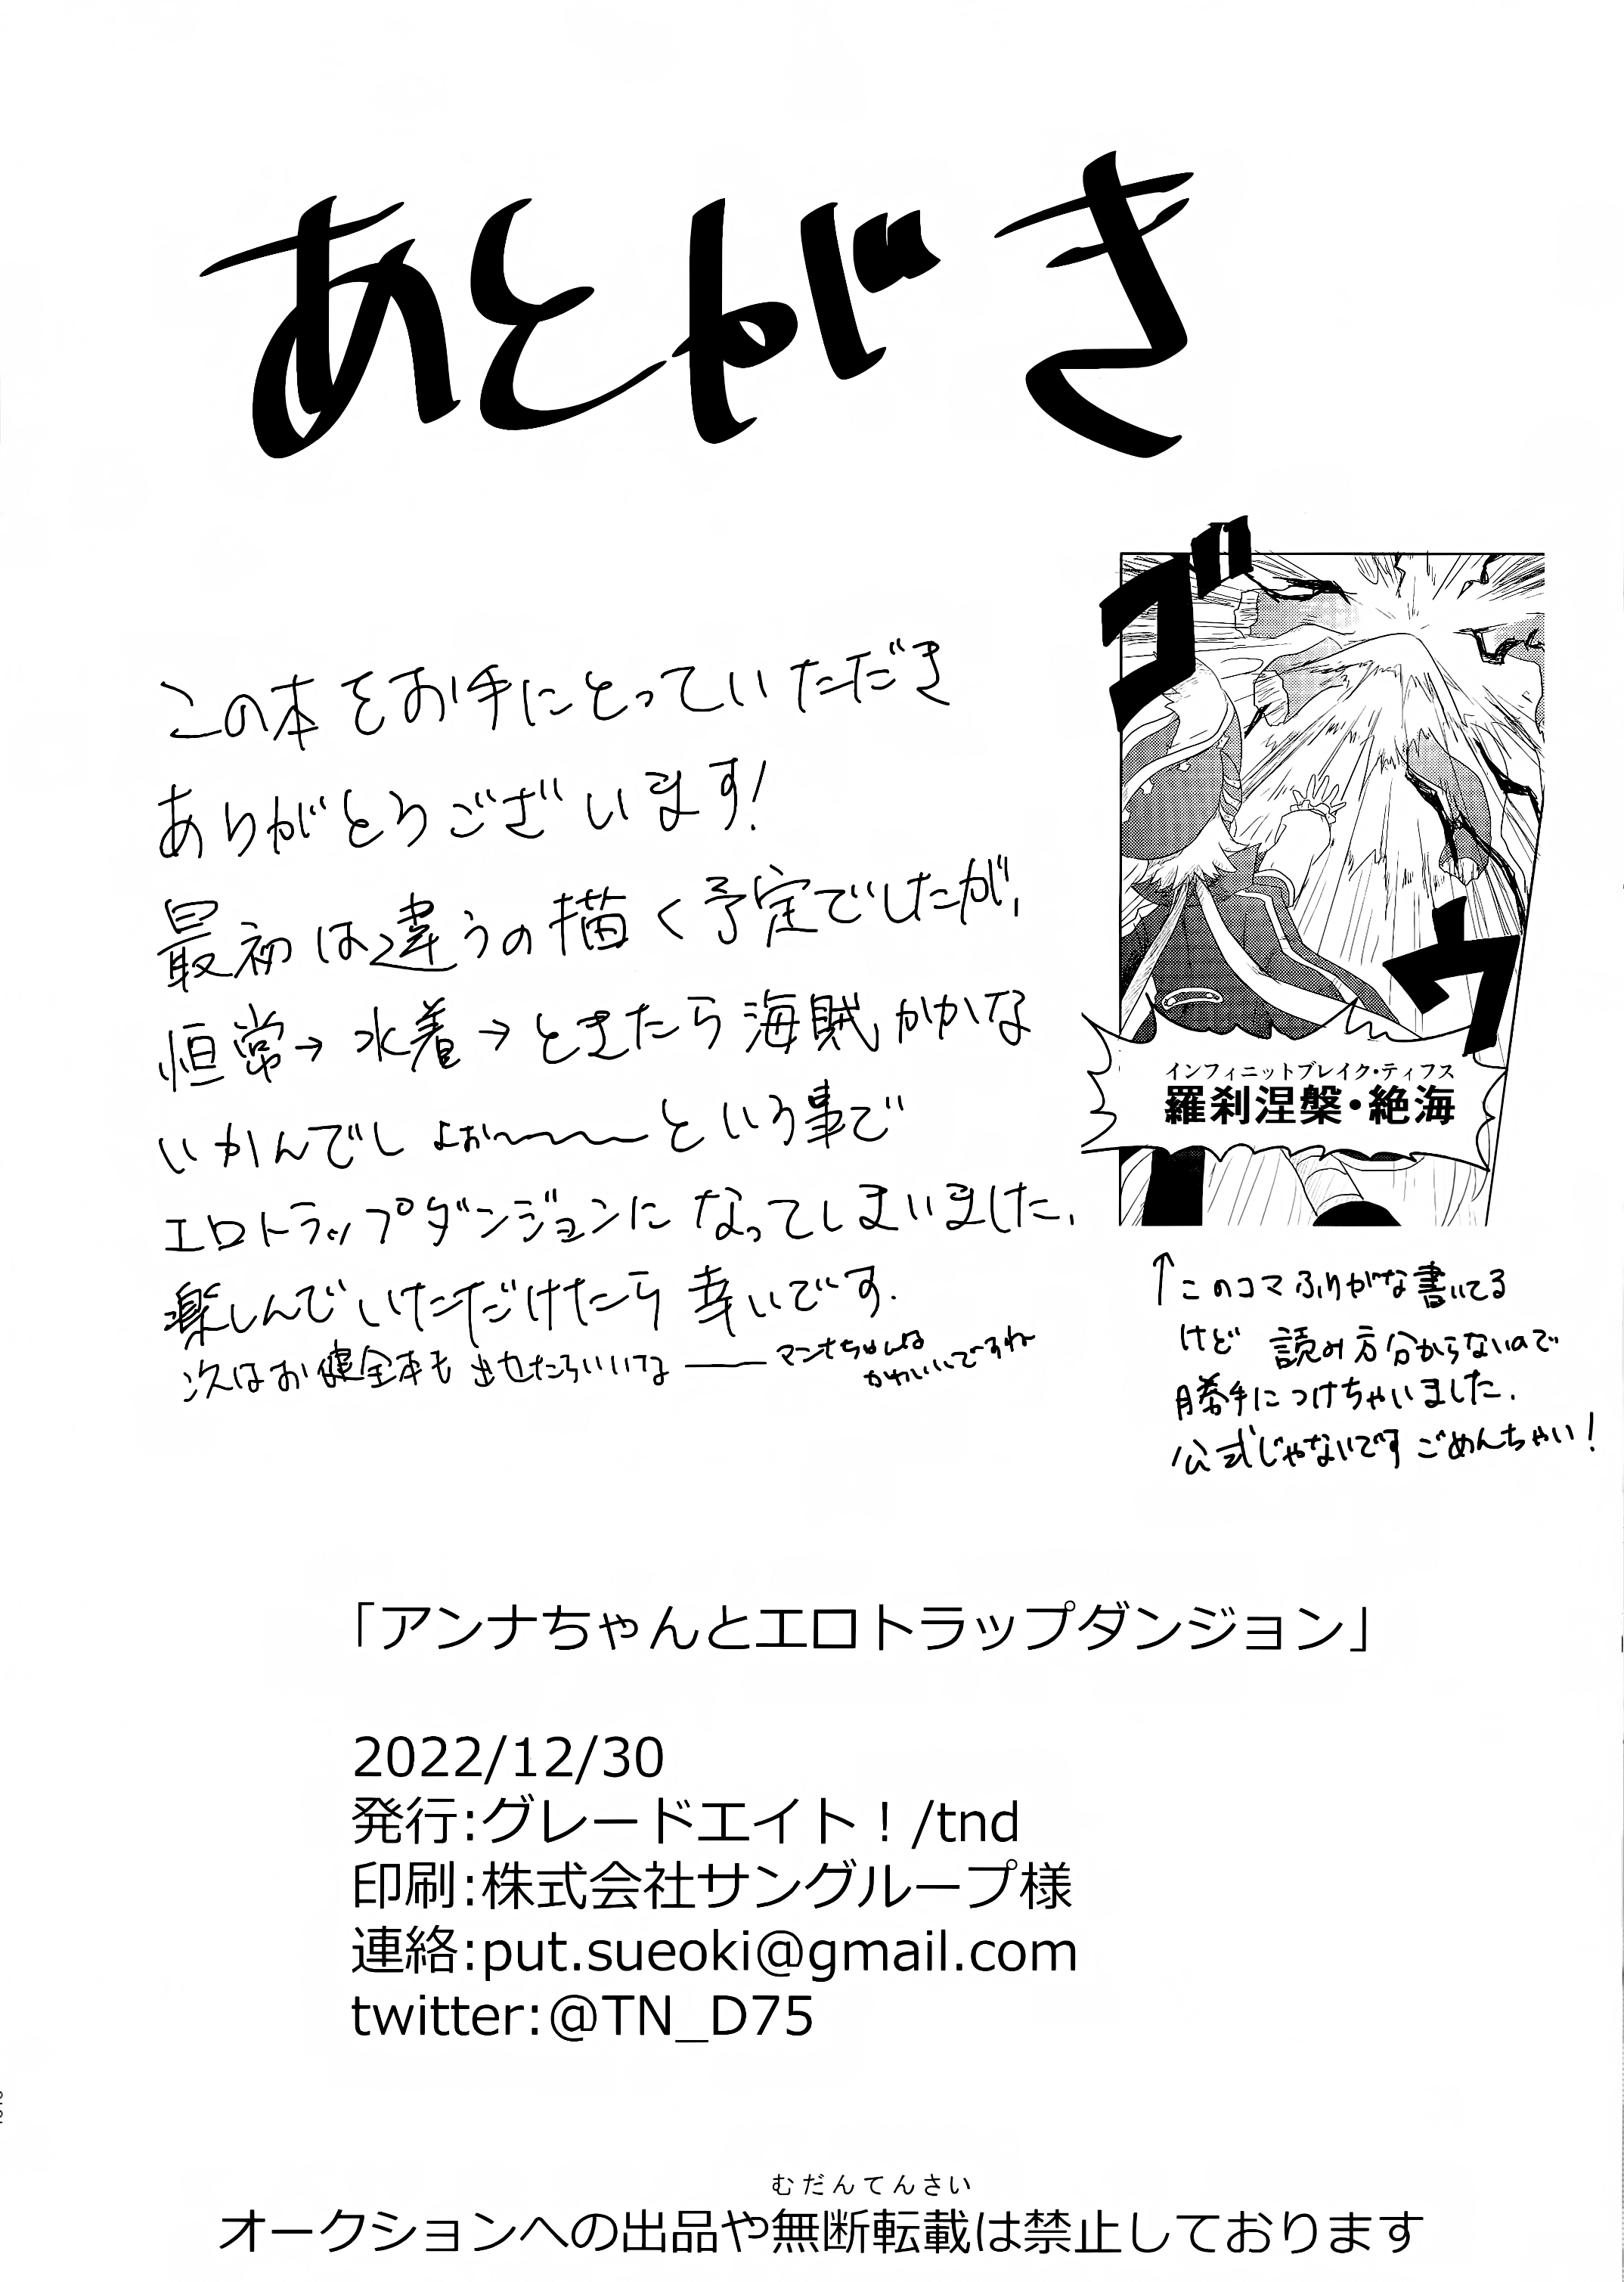 あとがき
この本をお手にとっていただき
ありがとうございます!
最初は違うの描く予定でしたが、
恒常→水着→ときたら海賊かかな
いかんでしょぉ〜〜〜という事で
エロトラップダンジョンになってしまいました、
楽しんでいただけたら幸いです.
次はお健全本も出せたらいいな――
マンナちゃんな
かわいいですね
ゴ
ウ
インフィニットブレイク・ティフス
羅刹涅槃・絶海
↑このコマふりがな書いてる
けど 読み方分からないので
勝手につけちゃいました.
公式じゃないです ごめんちゃい!
「アンナちゃんとエロトラップダンジョン」
2022/12/30
発行:グレードエイト!/tnd
印刷:株式会社サングループ様
連絡:put.sueoki@gmail.com
twitter:@TN_D75
むだんてんさい
オークションへの出品や無断転載は禁止しております